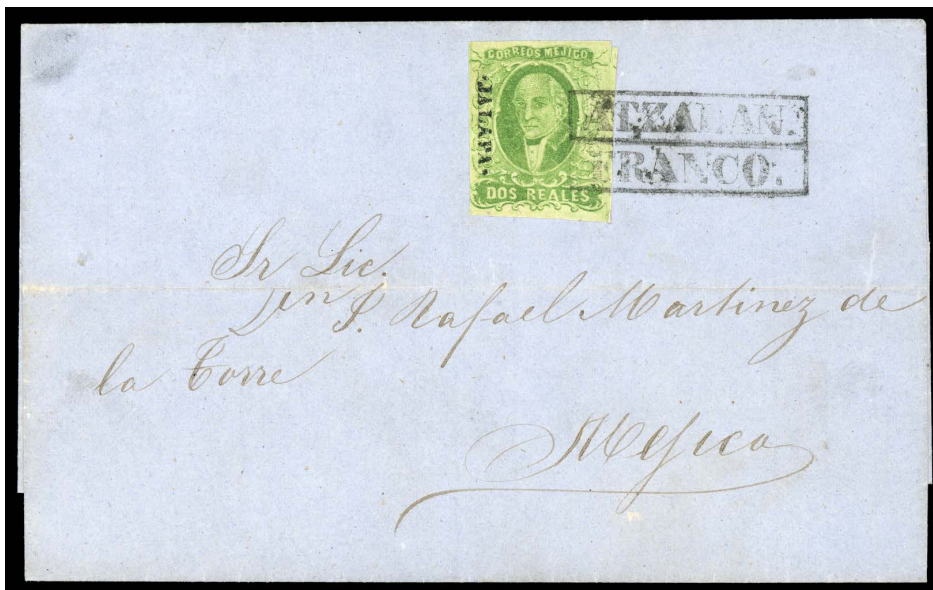 CORREOS MEJICO
·JALAPA·
DOS REALES
ATZALAN.
FRANCO.
Sr Lic.
Dn J. Rafael Martinez de
la Torre
Mejico